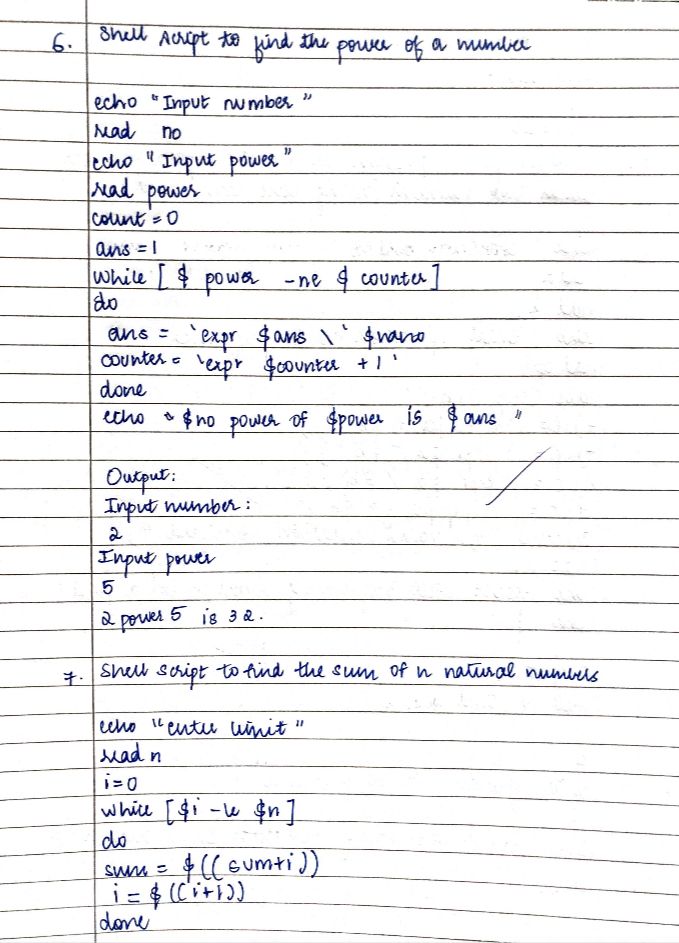 6. Shell script to find the power of a number
echo "Input number"
read no
echo "Input power"
read power
count = 0
ans = 1
while [ $ power -ne $ counter ]
do
ans = `expr $ans \` $nano
counter = `expr $counter + 1'
done
echo "$no power of $power is $ans"
Output:
Input number:
2
Input power
5
2 power 5 is 32.
7. Shell script to find the sum of n natural numbers
echo "enter limit"
read n
i=0
while [ $i -le $n ]
do
sum = $((sum+i))
i = $((i+1))
done